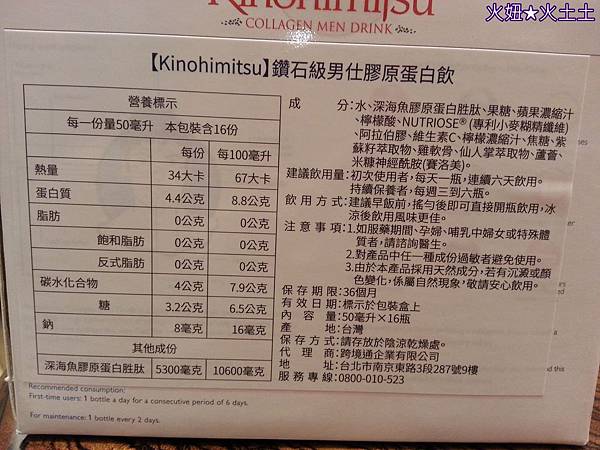 火妞★火土土
Kinohimitsu
COLLAGEN MEN DRINK
【Kinohimitsu】鑽石級男仕膠原蛋白飲
營養標示
每一份量50毫升 本包裝含16份
每份 每100毫升
熱量 34大卡 67大卡
蛋白質 4.4公克 8.8公克
脂肪 0公克 0公克
飽和脂肪 0公克 0公克
反式脂肪 0公克 0公克
碳水化合物 4公克 7.9公克
糖 3.2公克 6.5公克
鈉 8毫克 16毫克
其他成份
深海魚膠原蛋白胜肽 5300毫克 10600毫克
成分:水、深海魚膠原蛋白胜肽、果糖、蘋果濃縮汁
、檸檬酸、NUTRIOSE® (專利小麥糊精纖維)
、阿拉伯膠、維生素C、檸檬濃縮汁、焦糖、紫
蘇籽萃取物、雞軟骨、仙人掌萃取物、蘆薈、
米糠神經酰胺(賽洛美)。
建議飲用量:初次使用者,每天一瓶,連續六天飲用。
持續保養者,每週三到六瓶。
飲用方式:建議早飯前,搖勻後即可直接開瓶飲用,冰
涼後飲用風味更佳。
注意事項:1.如服藥期間、孕婦、哺乳中婦女或特殊體
質者,請諮詢醫生。
2.對產品中任一種成份過敏者避免使用。
3.由於本產品採用天然成分,若有沉澱或顏
色變化,係屬自然現象,敬請安心飲用。
保存期限:36個月
有效日期:標示於包裝盒上
內容量:50毫升×16瓶
產地:台灣
保存方式:請存放於陰涼乾燥處。
代理商:跨境通企業有限公司
地址:台北市南京東路3段287號9樓
服務專線:0800-010-523
Recommended consumption:
First-time users: 1 bottle a day for a consecutive period of 6 days.
For maintenance: 1 bottle every 2 days.